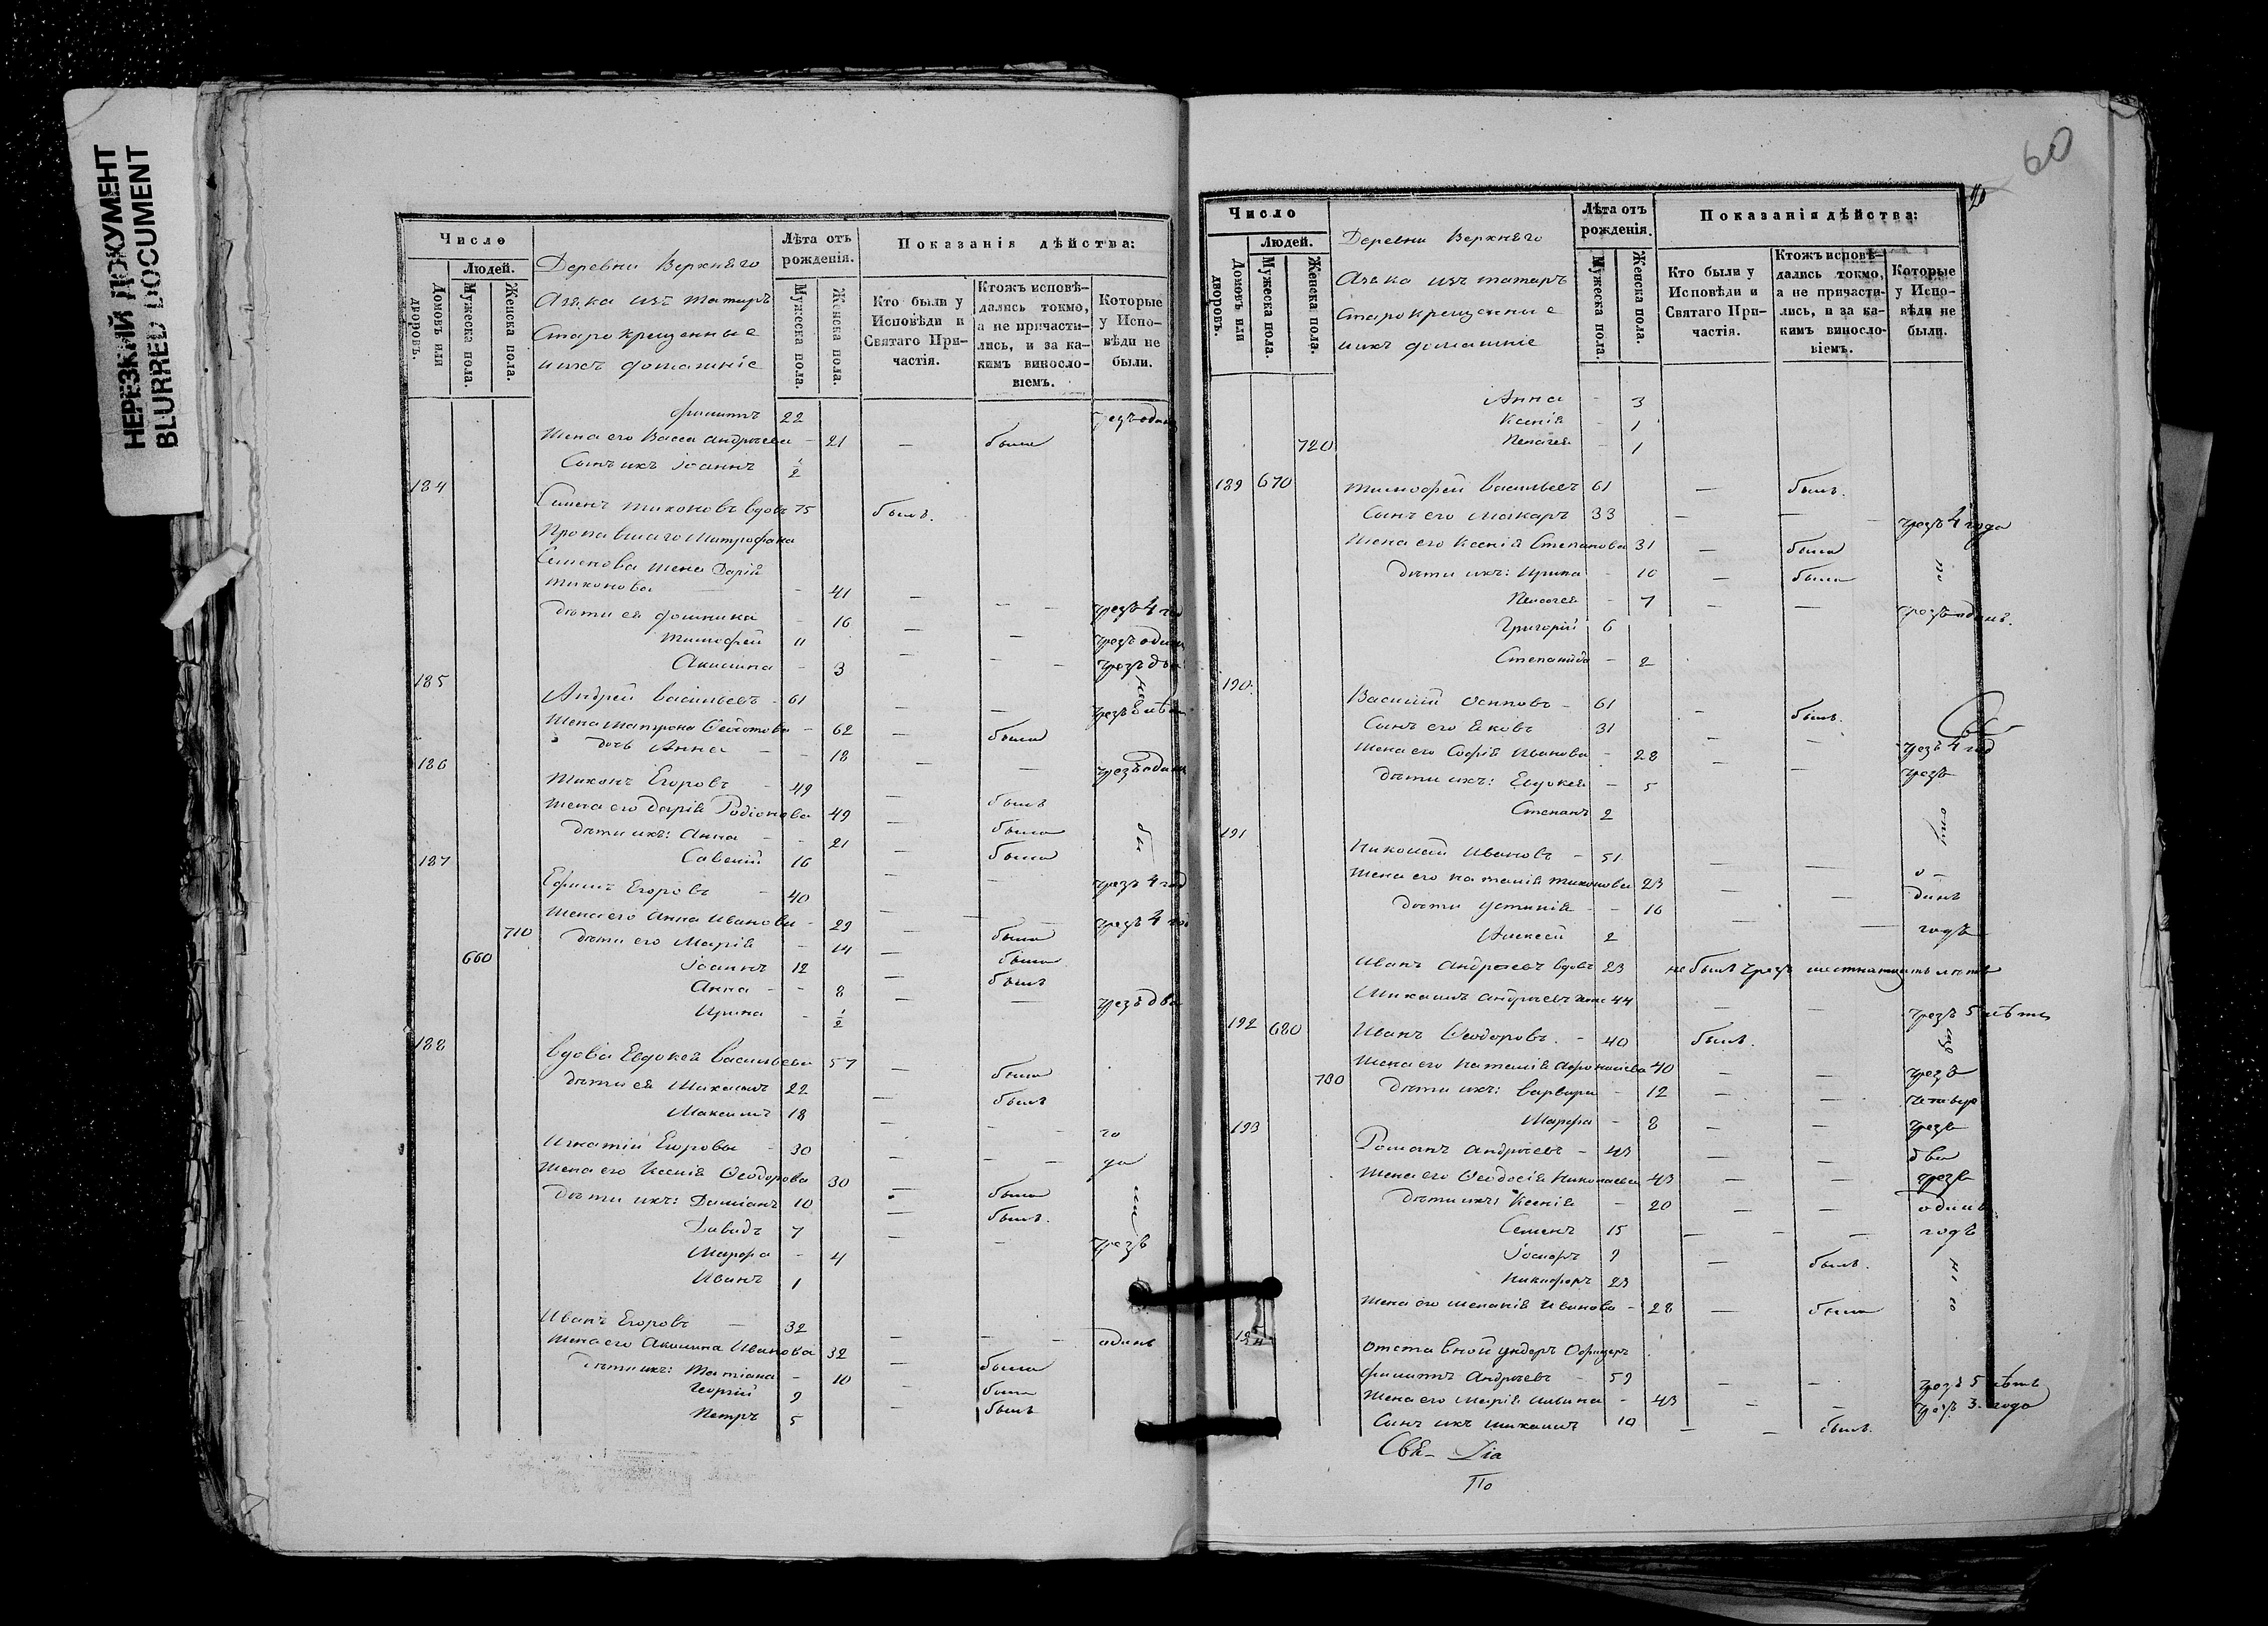 НЕРЕЗКИЙ ДОКУМЕНТ
BLURRED DOCUMENT
Число
Людей.
Домовъ или дворовъ.
Мужеска пола.
Женска пола.
Деревни Верхняго
Азяка изъ татаръ
Старокрещенные
и ихъ домашніе
Лѣта отъ рожденія.
Мужеска пола.
Женска пола.
Показанія дѣйства:
Кто были у Исповѣди и Святаго Причастія.
Ктожъ исповѣдались токмо, а не причастились, и за какимъ винословіемъ.
Которые у Исповѣди не были.
Филиппъ 22
Жена его Васса Андреева - 21 — была
Сынъ ихъ Іоаннъ ½
184
Семенъ Тихоновъ вдовъ 75 былъ.
Пропавшаго Митрофана
Семенова жена Дарія
Тихонова - 41 — — чрезъ 4
дѣти ея Домника - 16 — — чрезъ одинъ
Тимофей 11 — — чрезъ два
Акилина - 3
185
Андрей Васильевъ - 61 — — чрезъ
Жена Матрона Ѳедотова - 62 — была
дочь Анна - 18 — — чрезъ одинъ
186
Тихонъ Егоровъ - 49 — былъ
Жена его Дарія Родіонова 49 — была
дѣти ихъ: Анна - 21 — была
Савелій 16 — — чрезъ 4 год
187
Ефимъ Егоровъ - 40 — — чрезъ 4
710
Жена его Анна Иванова - 29 — была
дѣти его Марія - 14 — была
660
Іоаннъ 12 — былъ
Анна - 8 — — чрезъ два
Ирина - ½
188
Вдова Евдокея Васильева 57 — была
дѣти ея Михаилъ 22 — былъ
Максимъ 18 — — го
Игнатій Егоровъ 30 — — да
Жена его Ксенія Ѳеодорова 30 — была
дѣти ихъ: Даміанъ 10 — былъ.
Давидъ 7 — — чрезъ
Марфа - 4
Иванъ 1
Иванъ Егоровъ — 32 — — одинъ
Жена его Акилина Иванова 32 — была
дѣти ихъ: Татіана - 10 — была
Георгій 9 — былъ
Петръ 5
60
Число
Людей.
Домовъ или дворовъ.
Мужеска пола.
Женска пола.
Деревни Верхняго
Азяка изъ татаръ
Старокрещенные
и ихъ домашніе
Лѣта отъ рожденія.
Мужеска пола.
Женска пола.
Показанія дѣйства:
Кто были у Исповѣди и Святаго Причастія.
Ктожъ исповѣдались токмо, а не причастились, и за какимъ винословіемъ.
Которые у Исповѣди не были.
Анна - 3
Ксенія - 1
720
Пелагея - 1
189 670
Тимофей Васильевъ 61 — былъ.
Сынъ его Макаръ 33 — — чрезъ 4 года
Жена его Ксенія Степанова 31 — была
дѣти ихъ: Ирина - 10 — была
Пелагея - 7 — — чрезъ одинъ.
Григорій 6
Степанида - 2
190.
Василій Осиповъ - 61 — былъ.
Сынъ его Яковъ 31 — — чрезъ 4 год
Жена его Софія Иванова - 28 — — чрезъ
дѣти ихъ: Евдокея - 5
Степанъ 2
191
Николай Ивановъ - 51 — — о-
Жена его Наталія Тихонова 23 — — динъ
дѣти Устинія - 16 — — годъ
Алексей 2
Иванъ Андреевъ вдовъ 23 не былъ чрезъ шестнатцать лѣтъ
Михаилъ Андреевъ 44 — — чрезъ 5 лѣтъ
192 680
Иванъ Ѳеодоровъ. - 40 былъ.
Жена его Наталія Афонасіева 40 — — чрезъ
730
дѣти ихъ: Варвара - 12 — — четыре
Марфа - 8 — — чрезъ
193
Романъ Андреевъ - 43 — — два
Жена его Ѳеодосія Николаева 43 — — чрезъ
дѣти ихъ: Ксенія - 20 — — одинъ
Семенъ 15 — — годъ
Іосифъ 9 — былъ.
Никифоръ 23
Жена его Меланія Иванова - 28 — была
194
Отставной ундеръ Офицеръ
Филиппъ Андреевъ - 59 — — чрезъ 5 лѣтъ
Жена его Марія Ильина - 43 — — чрезъ 3 года
Сынъ ихъ Михаилъ 10 — — былъ.
Свя- Діа
По